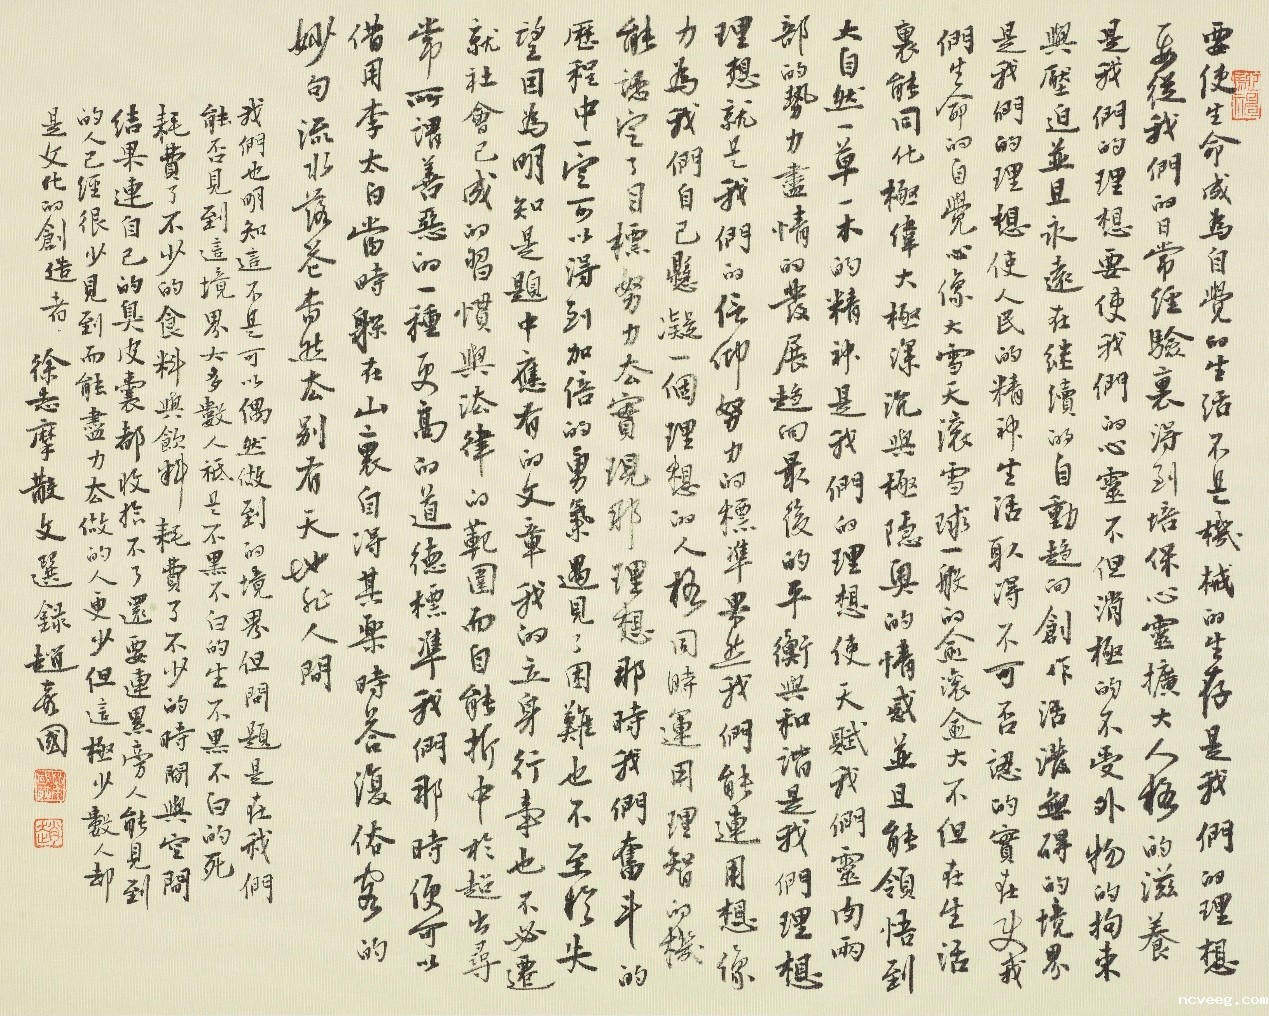 要使生命成為自覺的生活不是機械的生存是我們的理想
要從我們的日常經驗裏得到培保心靈擴大人格的滋養
是我們的理想要使我們的心靈不但消極的不受外物的拘束
與壓迫並且永遠在继續的自動趋向創作活潑無碍的境界
是我們的理想使人民的精神生活取得不可否認的實在使我
們生命的自覺心像大雪天滚雪球一般的愈滚愈大不但在生活
裏能同化極偉大極深沉與極隐奥的情感並且能領悟到
大自然一草一木的精神是我們的理想使天賦我們靈肉兩
部的勢力盡情的發展趋向最後的平衡與和諧是我們理想
理想就是我們的信仰努力的標準果然我們能連用想像
力為我們自己懸凝一個理想的人格同時運用理智的機
能認定了目標努力去實現那理想那時我們奮斗的
歷程中一定可以得到加倍的勇氣遇見了困難也不至於失
望因為明知是題中應有的文章我的立身行事也不必遷
就社會已成的習慣與法律的範圍而自能折中於超出尋
常所謂善惡的一種更高的道德標準我們那時便可以
借用李太白當時躲在山裏自得其樂時答復俗客的
妙句流水落花杳然去别有天地非人間
我們也明知這不是可以偶然做到的境界但問題是在我們
能否見到這境界大多數人祗是不黑不白的生不黑不白的死
耗費了不少的食料與飲料耗費了不少的時間與空間
結果連自己的臭皮囊都收拾不了還要連累旁人能見到
的人已經很少見到而能盡力去做的人更少但這極少數人却
是文化的創造者 徐志摩散文選録 趙家國
ncveeg.com